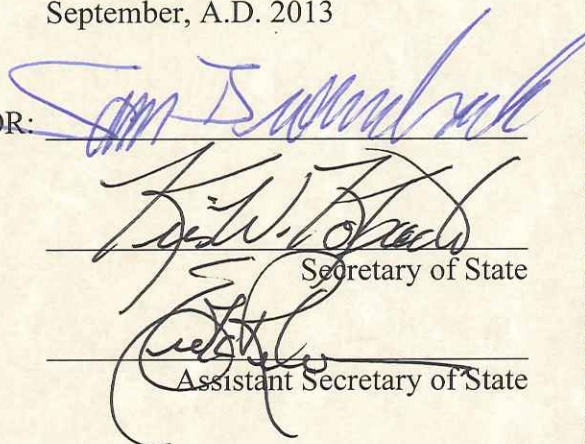 September, A.D. 2013
OR: Sam Brownback
Kris W. Kobach
Secretary of State
Assistant Secretary of State